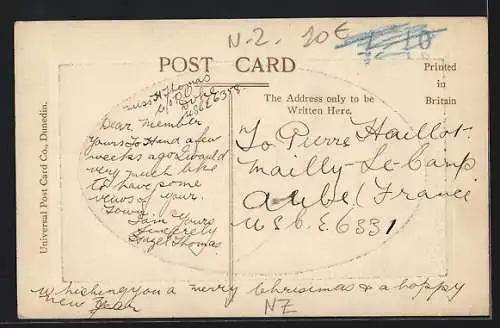 N.Z. 10€
POST CARD
Printed
in
Britain
The Address only to be
Written Here.
Universal Post Card Co., Dunedin.
Miss H Thomas
c/o P.O.
U.S.C.E. 6378
Dear Member
Yours To Hand a few
weeks ago I would
very much like
to have some
views of your
Town
I am Yours
Sincerely
Hazel Thomas
To Pierre Haillot
Mailly-Le-Camp
Aube (France
U.S.C.E. 6331
Whishing you a merry Christmas & a happy
new year
NZ